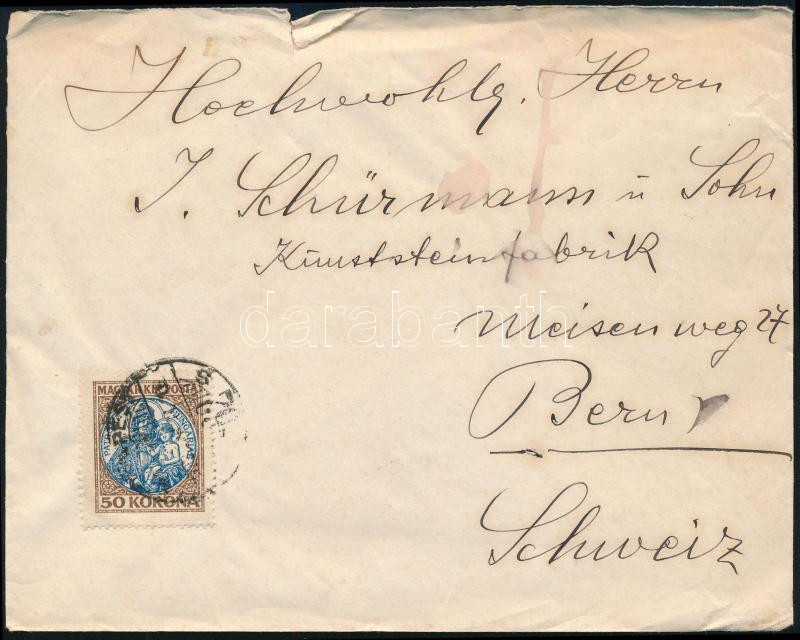 Hochwohlg. Herrn
J. Schürmann u Sohn
Kunststeinfabrik
Meisenweg 27
Bern
Schweiz
MAGYAR KIR. POSTA
HUNGARIAE
50 KORONA
darabanth